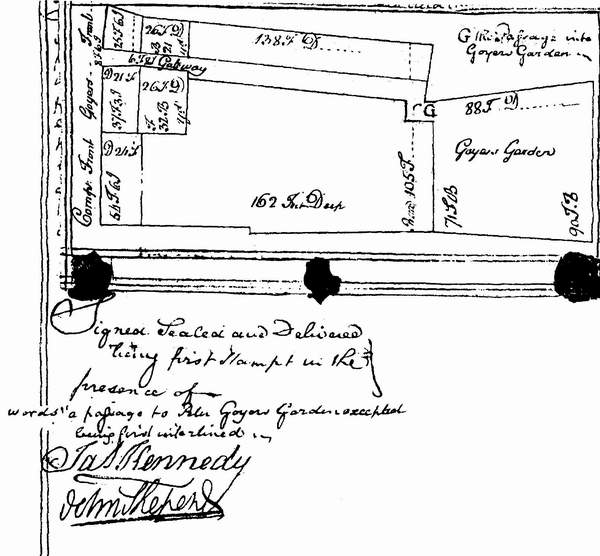 G this passage into
Goyers Garden
138 F D
26 F D
21
6 F 8 I Gateway
Goyers Front
D 21 F
37 F 3 I
26 F D
32 B
88 F D
G
Goyers Garden
Comps Front
D 24 F
51 F 6 I
162 Feet Deep
Rear 105 F
71 F B
90 F B
Signed Sealed and Delivered
being first Stampt in the
presence of
words "a passage to Peter Goyers Garden excepted
being first interlined
Jas. Kennedy